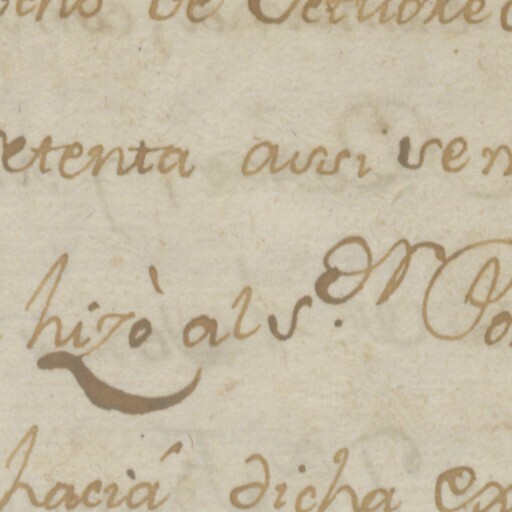 ocho de Octubre
setenta assi ven
hizò al s.or Do
hacia dicha ex